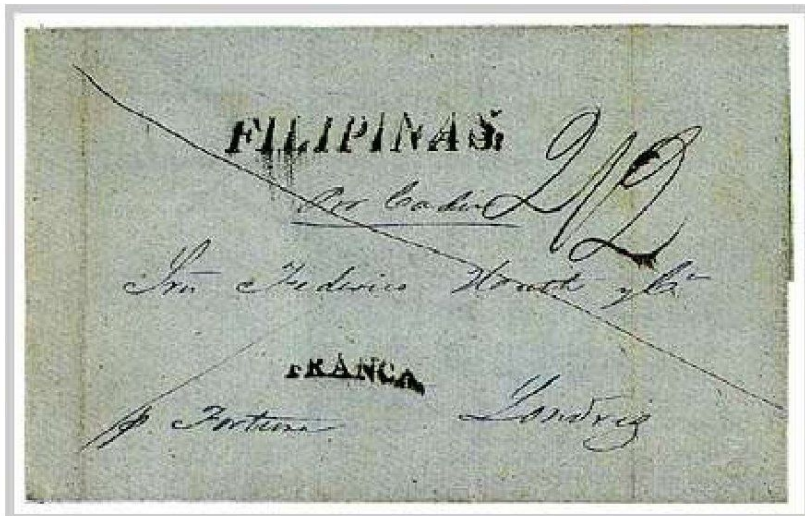 FILIPINAS.
Por Cadiz 2/2
Federico Huth y Cª
FRANCA
p. Fortuna Londres